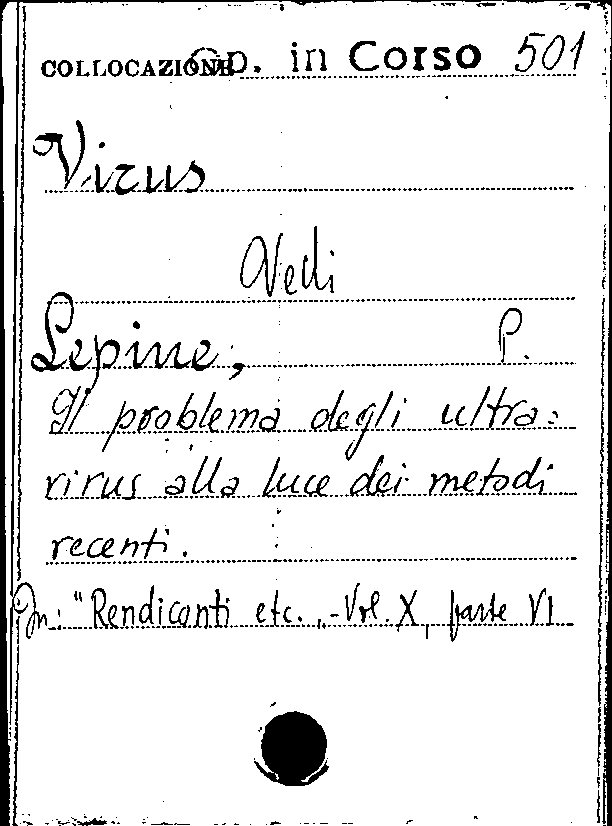 COLLOCAZIONE Op. in Corso 501
Virus
Vedi
Lepine, P.
Il problema degli ultra=
virus alla luce dei metodi
recenti.
In: "Rendiconti etc. „-Vol. X, parte VI